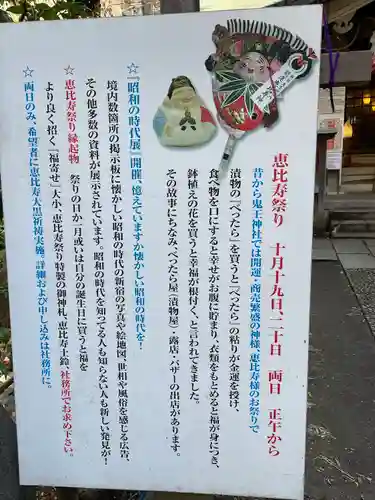 恵比寿祭り 十月十九日、二十日 両日 正午から
昔から鬼王神社では開運・商売繁盛の神様、恵比寿様のお祭りで
漬物の「べったら」を買うと「べったら」の粘りが金運を授け、
食べ物を口にすると幸せがお腹に貯まり、衣類をもとめると福が身につき、
鉢植えの花を買うと幸福が根付く、と言われてきました。
その故事にちなみ、べったら屋(漬物屋)・露店・バザーの出店があります。
☆『昭和の時代展』開催、憶えていますか懐かしい昭和の時代を!
境内数箇所の掲示板に懐かしい昭和の時代の新宿の写真や絵地図、世相や風俗を感じる広告、
その他多数の資料が展示されています。昭和の時代を知ってる人も知らない人も新しい発見が!
☆恵比寿祭り縁起物 祭りの日か二月或いは自分の誕生日に買うと福を
より良く招く『福寄せ』大小・恵比寿祭り特製の御神札、恵比寿土鈴、社務所でお求め下さい。
☆両日のみ、希望者に恵比寿大黒祈祷実施。詳細および申し込みは社務所に。